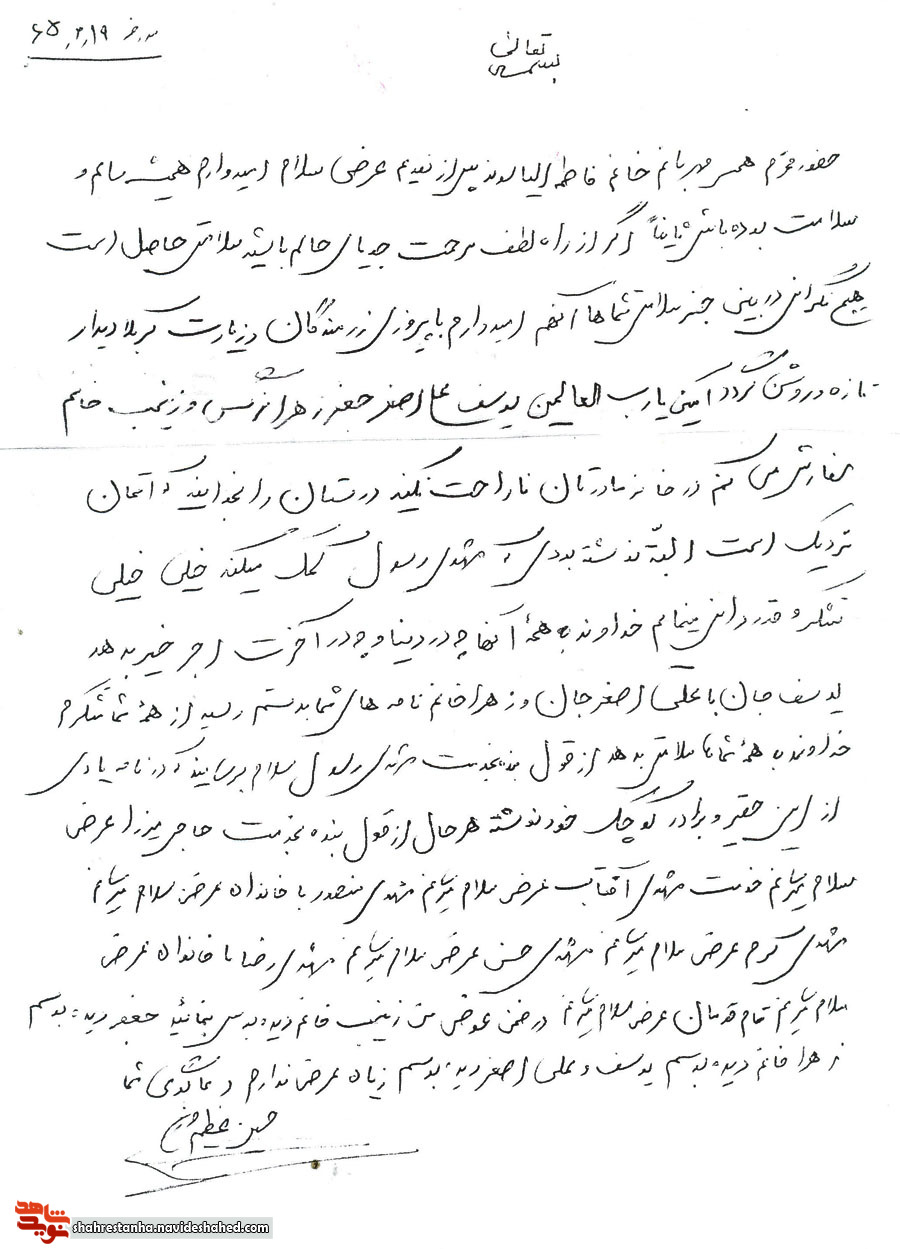 مورخه ۶۵٫۲٫۱۹
بسمه تعالی
حضور محترم همسر مهربانم خانم فاطمه الیاسوند پس از تقدیم عرض سلام امیدوارم همیشه سالم و
سلامت بوده باشی ثانیاً اگر از راه لطف مرحمت جویای حالم باشید سلامتی حاصل است
هیچ نگرانی در بینی جز سلامتی شماها آنهم امیدوارم با پیروزی رزمندگان و زیارت کربلا دیدار
تازه و روشن گردد آمین یارب العالمین یوسف علی اصغر جعفر زهرا نرگس و زینب خانم
سفارش می کنم در خانه مادرتان ناراحت نکنید درستان را بخوانید که امتحان
نزدیک است البته نوشته بودی که مشهدی رسول کمک میکند خیلی خیلی
تشکر و قدردانی مینمایم خداوند به همهٔ آنها چه در دنیا و چه در آخرت اجر خیر بدهد
یوسف جان با علی اصغر جان و زهرا خانم نامه های شما بدستم رسید از همهٔ شما متشکرم
خداوند به همهٔ شماها سلامتی بدهد از قول بنده بخدمت مشهدی رسول سلام برسانید که در نامه یادی
از این حقیر و برادر کوچک خود نوشته هر حال از قول بنده بخدمت حاجی میرزا عرض
سلام میرسانم خدمت مشهدی آفتاب عرض سلام میرسانم مشهدی منصور با خانواده عرض سلام میرسانم
مشهدی کرم عرض سلام میرسانم مشهدی حسن عرض سلام میرسانم مشهدی رضا با خانواده عرض
سلام میرسانم تمام قومان عرض سلام میرسانم در ضمن عوض من زینب خانم دیده بوسی بنمائید جعفر دیده بوسم
زهرا خانم دیده بوسم یوسف و علی اصغر دیده بوسم زیاده عرضی ندارم دعاگوی شما
حسین
نوید شاهد
shahrestanha.navideshahed.com